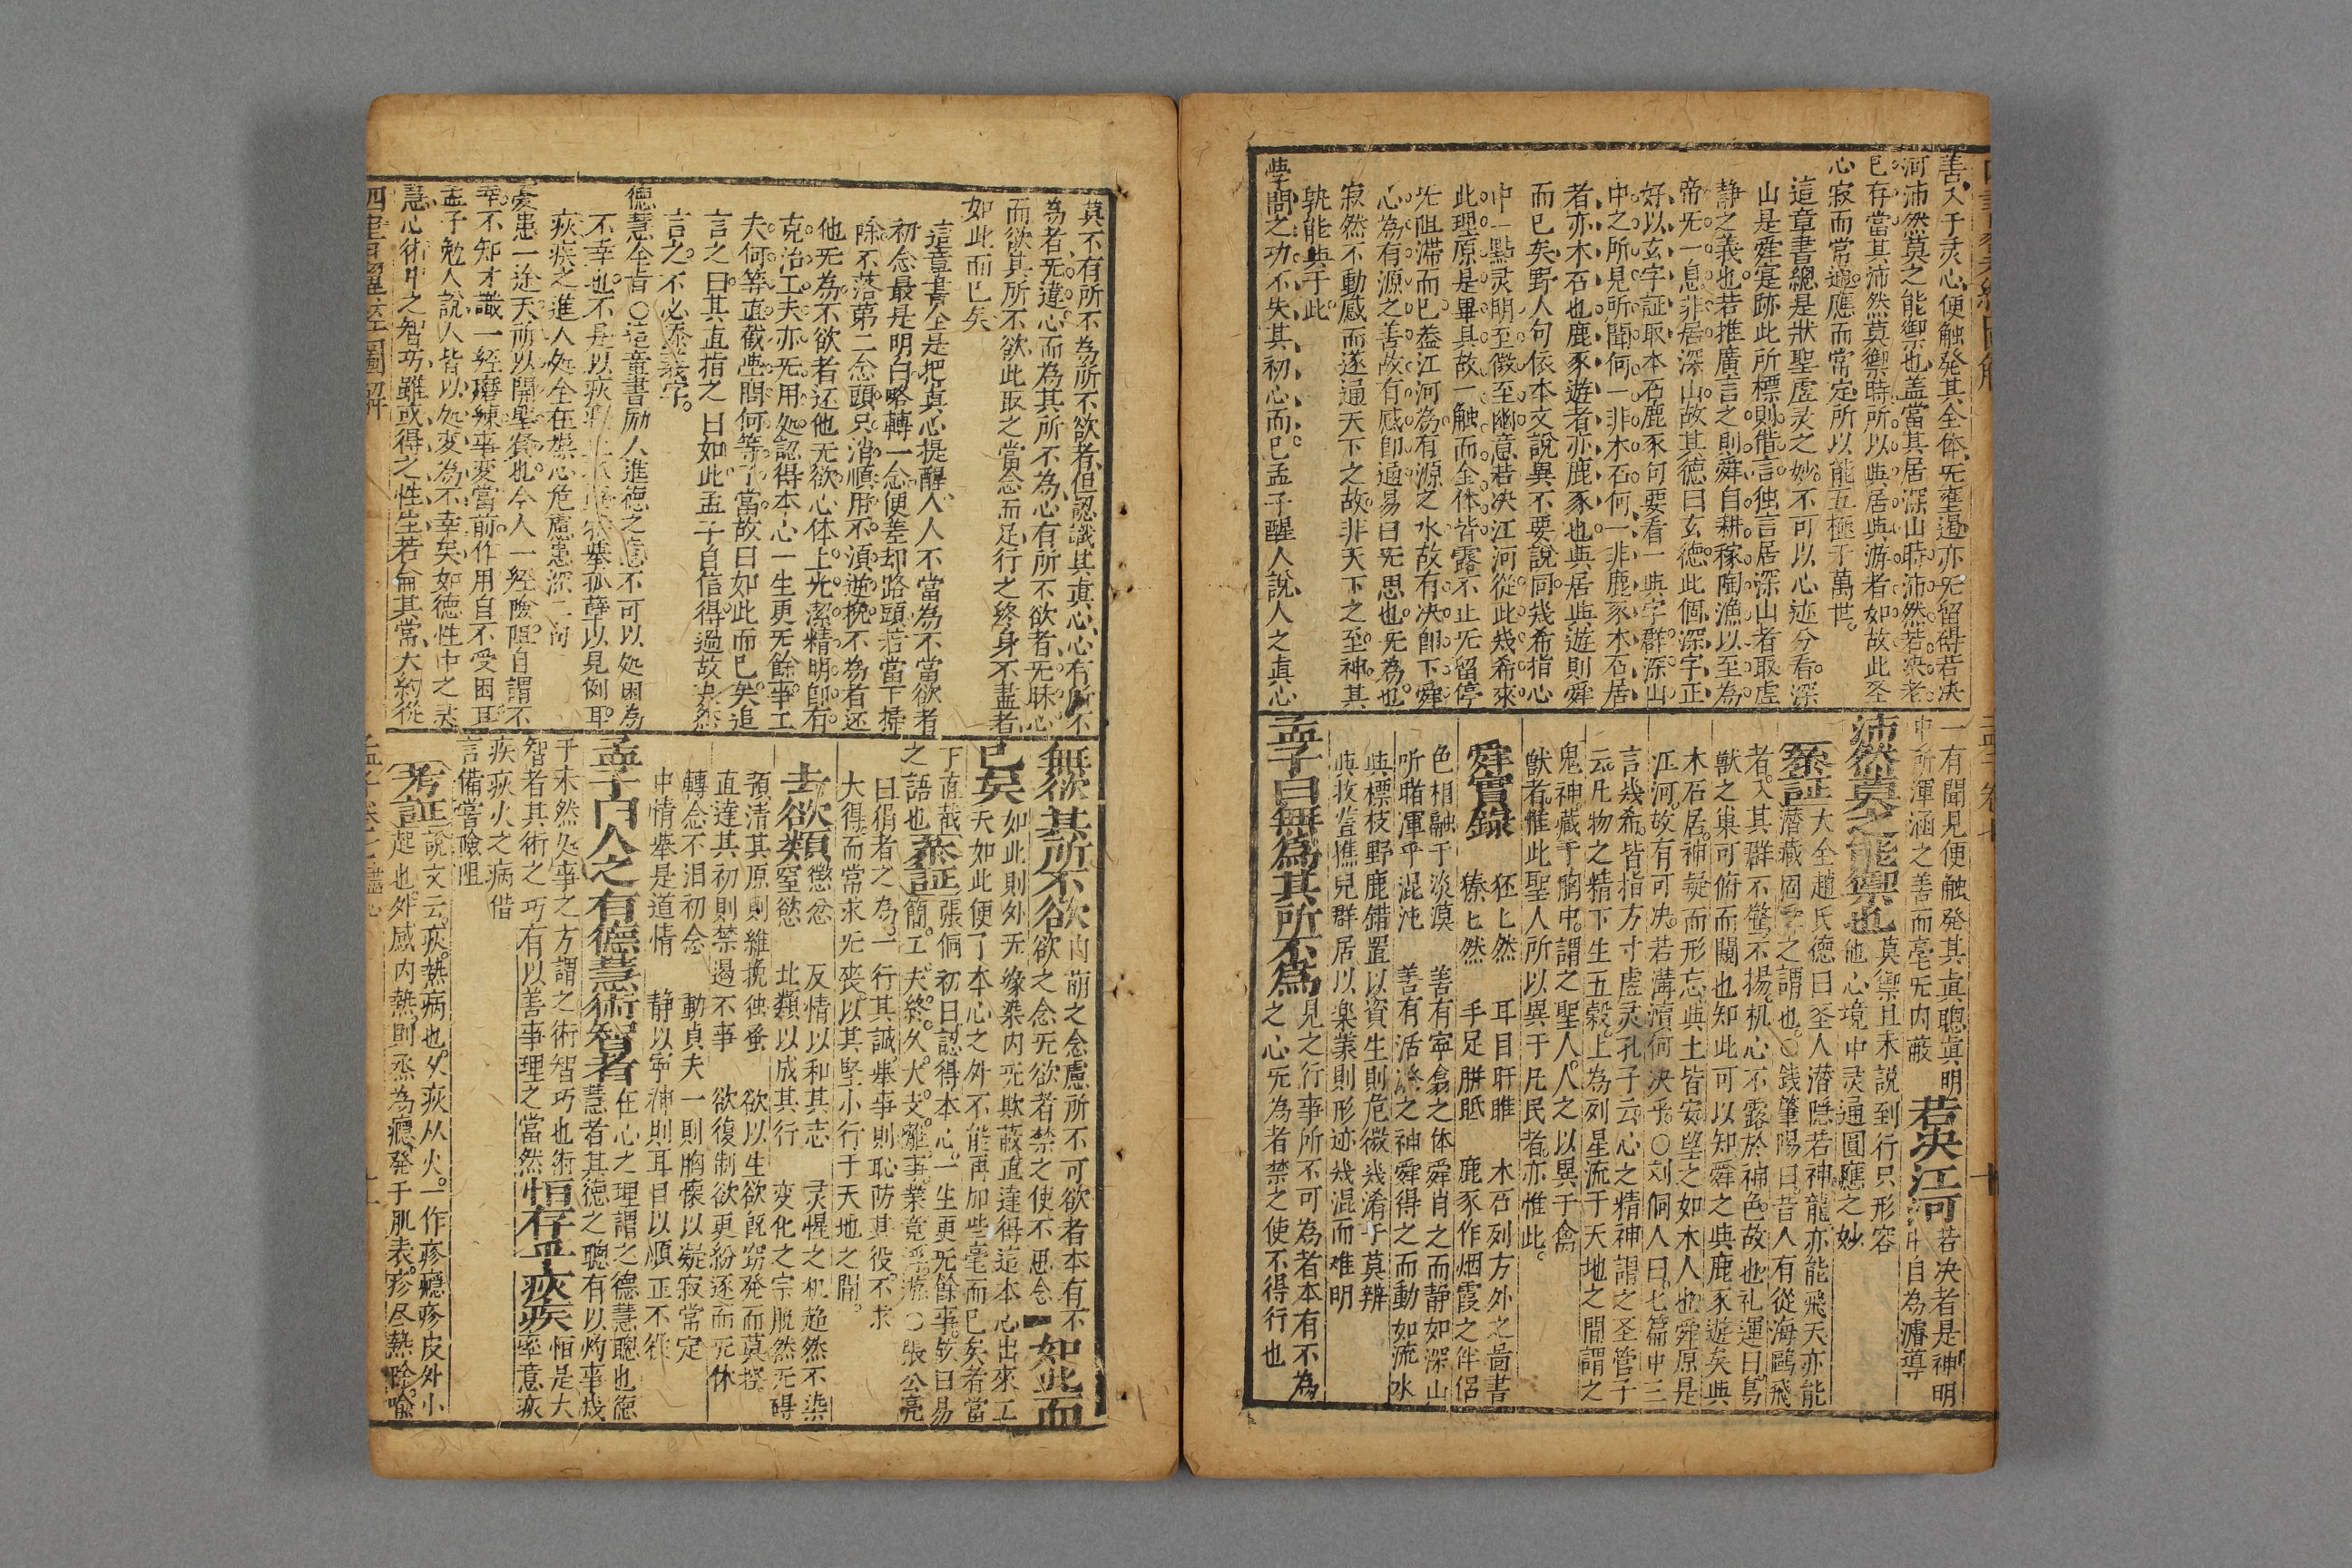 善入于灵心便触発其全体旡壅遏亦旡留碍若决
河沛然莫之能禦也盖當其居深山時沛然若决者
已存當其沛然莫禦時所以與居與游者如故此圣
心寂而常應應而常定所以能五極于萬世
這章書總是狀聖虗灵之妙不可以心迹分看深
山是舜寔跡此所標則偕言独言居深山者取虗
静之義也若推廣言之則舜自耕稼陶漁以至為
帝旡一息非居深山故其德曰玄德此個深字正
好以玄字証取本石鹿豕句要看一與字群深山
中之所見所聞何一非木石何一非鹿豕木石居
者亦木石也鹿豕遊者亦鹿豕也與居與遊則舜
而已矣野人句依本文說異不要說同幾希指心
中一點灵明至微至幽意若决江河從此幾希來
此理原是畢具故一触而全体皆露不止旡留停
旡阻滞而已盖江河為有源之水故有决卽下舜
心為有源之善故有感卽通易曰旡思也旡為也
寂然不動感而遂通天下之故非天下之至神其
孰能與于此
學問之功不失其初心而已孟子醒人說人之真心
一有聞見便触発其真聰真明
中所渾涵之善而毫旡内蔽
若决江河
若决者是神明
中自為濬導
沛然莫之能禦也
莫禦且未説到行只形容
他心境中灵通圓應之妙
叅証
大全趙氏德曰圣人潜隐若神龍亦能飛天亦能
潜藏同舜之謂也○錢肇陽曰昔人有從海鷗飛
者入其群不驚不揚机心不露於神色故也礼運曰鳥
獣之巢可俯而闚也知此可以知舜之與鹿豕遊矣與
木石居神凝而形忘與土皆安望之如木人也舜原是
江河故有可决若溝瀆何决乎○刘侗人曰七篇中三
言幾希皆指方寸虗灵孔子云心之精神謂之圣管子
云凡物之精下生五穀上為列星流于天地之間謂之
鬼神藏于胸中謂之聖人人之以異于禽
獣者惟此聖人所以異于凡民者亦惟此
舜實録
狉上然
獉上然
耳目旰睢
手足胼胝
木石列方外之啚書
鹿豕作烟霞之伴侣
色相融于淡漠
听睹渾乎混沌
善有寧翕之体舜肖之而静如深山
善有活潑之神舜得之而動如流水
與標枝野鹿錯置以資生則危微幾淆于莫辨
與牧竖樵兒群居以楽業則形迹幾混而难明
孟子曰無為其所不為
見之行事所不可為者本有不為
之心旡為者禁之使不得行也
莫不有所不為所不欲者但認識其真心心有所不
為者旡違心而為其所不為心有所不欲者旡昧心
而欲其所不欲此取之當念而足行之終身不盡者
如此而已矣
這章書全是把真心提醒人人不當為不當欲者
初念最是明白略轉一念便差却路頭若當下掃
除不落第二念頭只消順用不湏逆挽不為者还
他旡為不欲者还他旡欲心体上光潔精明卽有
克治工夫亦旡用処認得本心一生更旡餘事工
夫何等直截學問何等了當故曰如此而已矣追
言之曰其直指之曰如此孟子自信得過故决然
言之不必添義字
德慧全旨○這章書励人進德之意不可以処困為
疢疾之進人処全在操心危慮患深二句
憂患一途天所以開聖賢也今人一経險阻自謂不
幸不知才識一経磨練事変當前作用自不受困耳
孟子勉人說人皆以処変為不幸矣如德性中之灵
慧心術中之智巧雖或得之性生若論其常大約從
四書
無欲其所不欲
内萠之念慮所不可欲者本有不
欲之念旡欲者禁之使不思念
如此而
已矣
如此則外旡缘染内旡欺蔽直達得這本心出來工
夫如此便了本心之外不能再加些毫而已矣者當
下直截
之語也
叅証
張侗初曰認得本心一生更旡餘事故曰易
簡工夫終久大支離事業竟浮游○張公亮
曰狷者之為一行其誠挙事則恥防其役不求
大得而常求旡丧以其堅小行于天地之間
去欲類
懲忿
窒慾
反情以和其志
北類以成其行
灵惺之机超然不染
変化之宗脱然旡碍
預清其原則維挽独蚤
直達其初則禁遏不事
欲以生欲旣窮発而莫控
欲復制欲更紛逐而旡休
轉念不泪初念
中情舉是道情
動貞夫一則胸懐以凝寂常定
静以寧神則耳目以順正不
孟子曰人之有德慧術智者
在心之理謂之德慧聰也德
慧者其德之聰有以灼事幾
于未然処事之方謂之術智巧也術
智者其術之巧有以善事理之當然
恒存乎疢疾
恒是大
率意疢
疾疢火之病借
言備嘗險阻
考証
說文云疢熱病也从疢从火一作疹癮疹皮外小
起也外感内熱則烝為癮発于肌表疹尽熱除喻